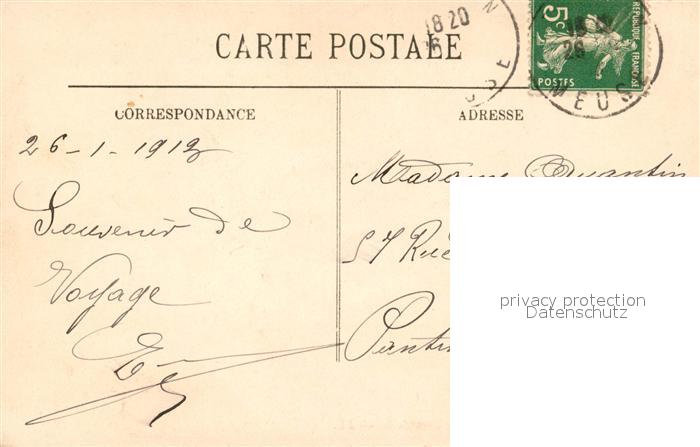 CARTE POSTALE
18 20
26
MEUSE
5c
REPUBLIQUE FRANÇAISE
POSTES
MEUS
CORRESPONDANCE
ADRESSE
26-1-1912
Souvenir de
Voyage
Madame Quantin
57 Rue
Pantin
privacy protection
Datenschutz